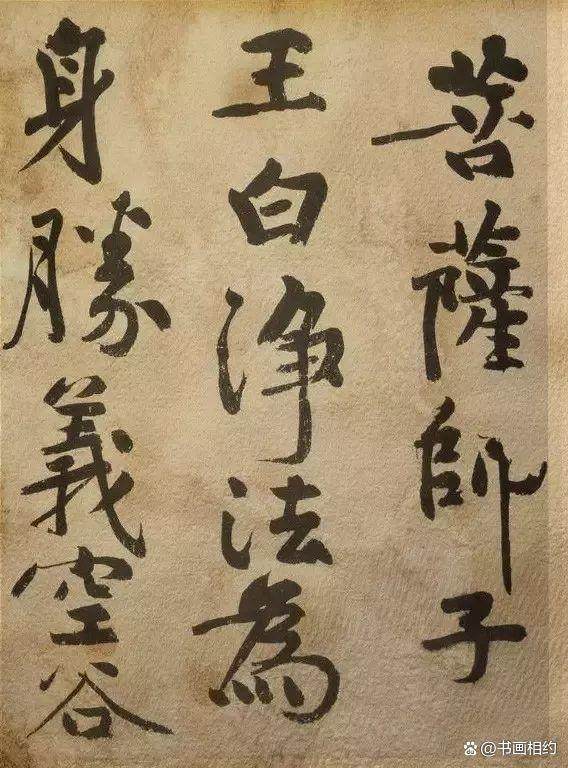 菩薩師子
王白淨法為
身勝義空谷
@书画相约